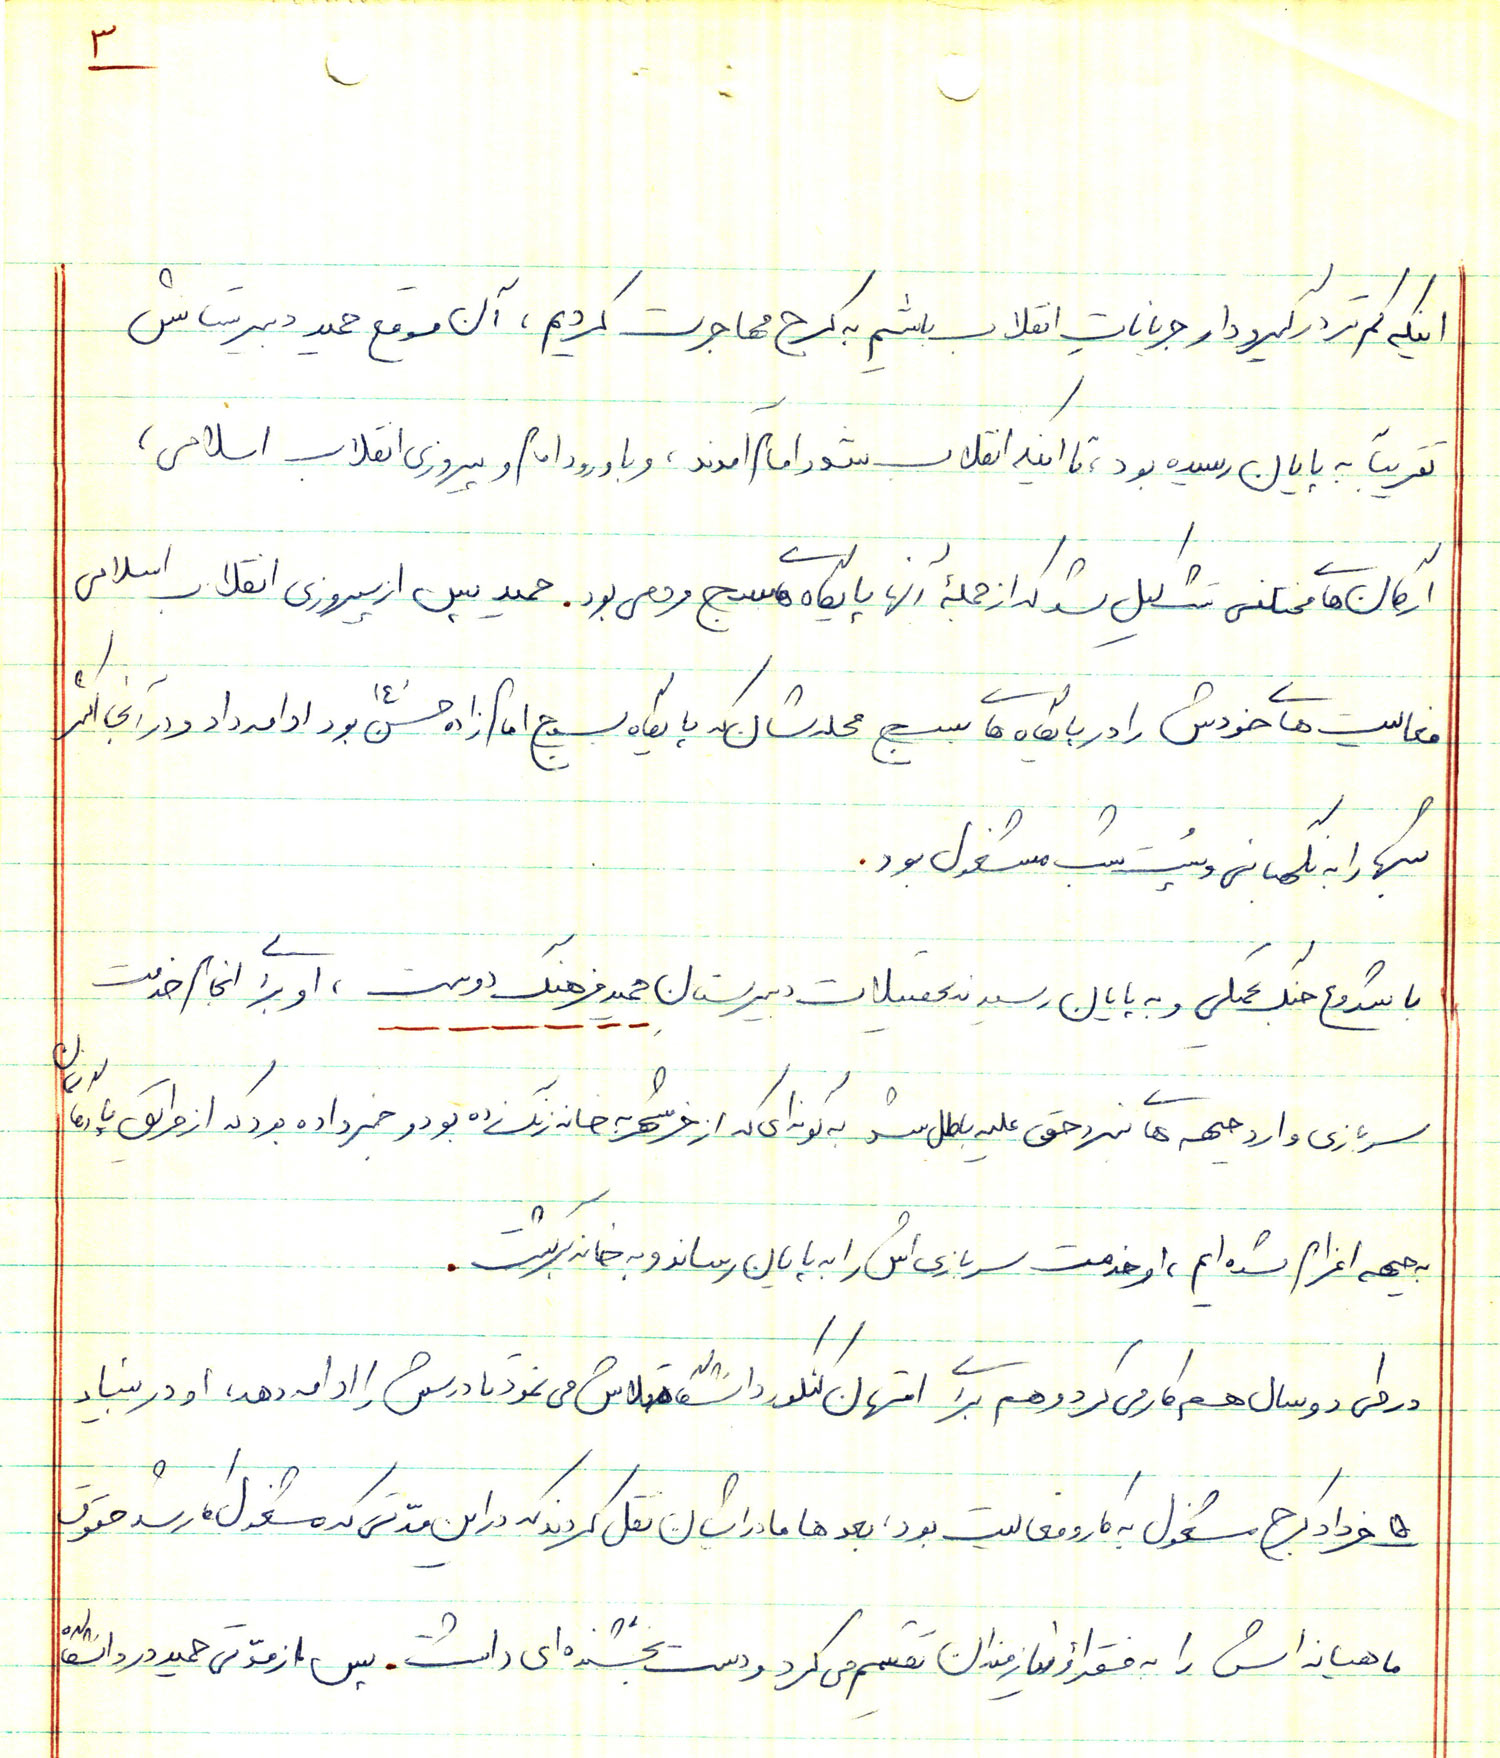 ۳
اینکه کم‌تر درگیرودار جریاناتِ انقلاب باشیم به کرج مهاجرت کردیم، آن موقع حمید دبیرستانش
تقریباً به پایان رسیده بود، تا اینکه انقلاب شد و امام آمدند، و با ورود امام و پیروزی انقلاب اسلامی،
ارگان‌های مختلفی تشکیل شد که از جملهٔ آنها پایگاه‌های بسیج مردمی بود. حمید پس از پیروزی انقلاب اسلامی
فعالیت‌های خودش را در پایگاه‌های بسیج محله‌شان که پایگاه بسیج امام زاده حسن (ع) بود ادامه داد و در آنجا اکثر
شبها را به نگهبانی و پُست شب مشغول بود.
با شروع جنگ تحمیلی و به پایان رسیدن تحصیلات دبیرستان حمید فرهنگ دوست، او برای انجام خدمت
سربازی وارد جبهه های نبرد حق علیه باطل شد به گونه‌ای که از خرمشهر به خانه زنگ زده بود و خبر داده بود که از طریق پادگان
به جبهه اعزام شده ایم، او خدمت سربازی اش را به پایان رساند و به خانه برگشت.
در طی دو سال هم کار می کرد و هم برای امتحان کنکور دانشگاه تلاش می نمود تا درسش را ادامه دهد، او در بنیاد
۱۵ خرداد کرج مشغول به کار و فعالیت بود، بعدها مادر ایشان نقل کردند که در این مدّتی که مشغول کار شد حقوق
ماهیانه اش را به فقرا و نیازمندان تقسیم می کرد و دست بخشنده‌ای داشت. پس از مدّتی حمید در دانشگاه